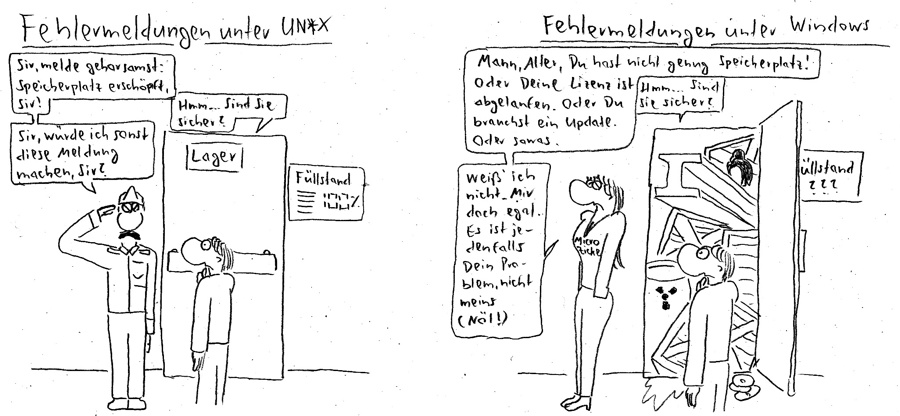 Fehlermeldungen unter UN*X
Sir, melde gehorsamst:
Speicherplatz erschöpft,
Sir!
Hmm... Sind Sie
sicher?
Sir, würde ich sonst
diese Meldung
machen, Sir?
Lager
Füllstand
100%
Fehlermeldungen unter Windows
Mann, Alter, Du hast nicht genug Speicherplatz!
Oder Deine Lizenz ist
abgelaufen. Oder Du
brauchst ein Update.
Oder sowas.
Hmm... Sind
sie sicher?
Weiß' ich
nicht. Mir
doch egal.
Es ist je-
denfalls
Dein Pro-
blem, nicht
meins
(Nöl!)
Micro
üllstand
???